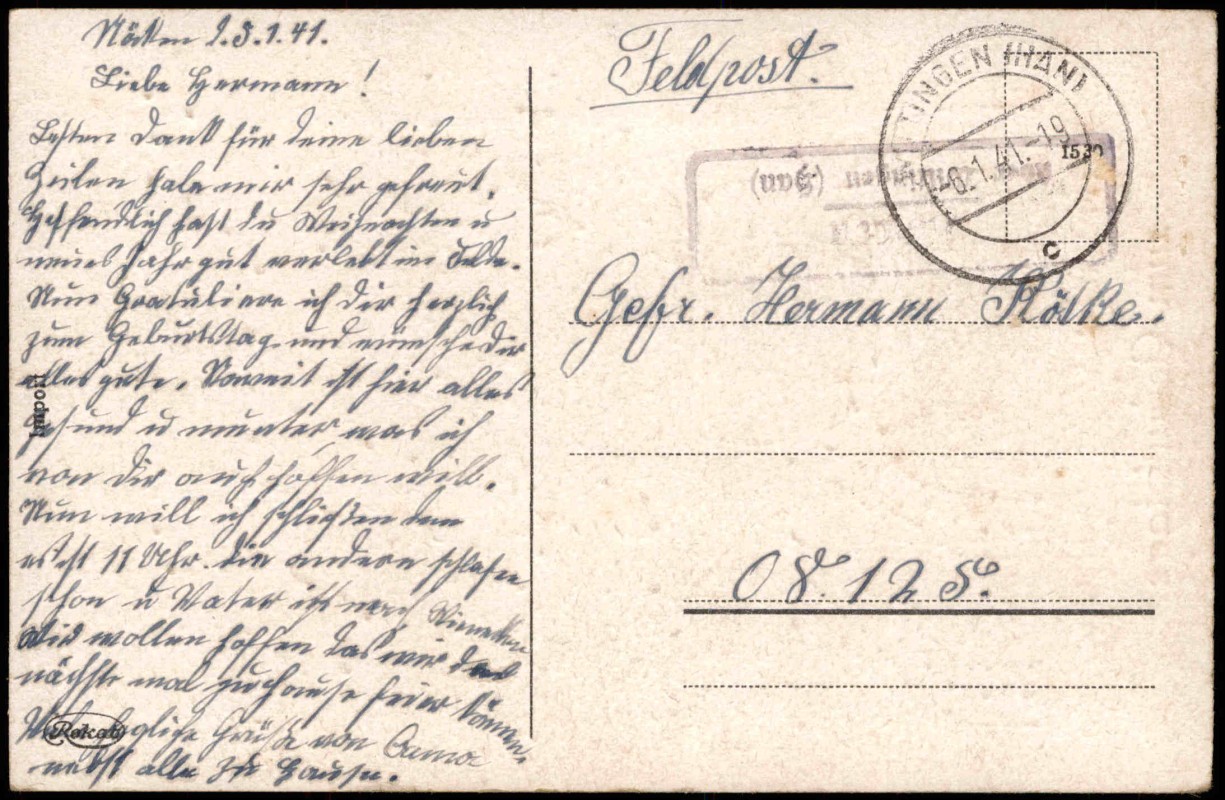 Nätten 2.3.1.41.
Liebe Hermann!
Besten Dank für deine lieben
Zeilen habe mir sehr gefreut.
Hoffendlich hast du Weihnachten u
neues Jahr gut verlebt im Felde.
Nun Gratuliere ich dir herzlich
zum Geburtstag und wünsche dir
alles gute. Soweit ist hier alles
gesund u munter, was ich
von dir auch hoffen will.
Nun will ich schließen den
es ist 11 Uhr. die andern schlafen
schon u Vater ist nach
Wir wollen hoffen das wir das
nächste mal zuhause feier können.
herzliche Grüße von Anna
nebst alle zu Hause.
Import
Rokat
Feldpost.
TINGEN (HAN)
-6.1.41.-19
c
1530
(Han)
Gefr. Hermann Kölke.
08.12 S.